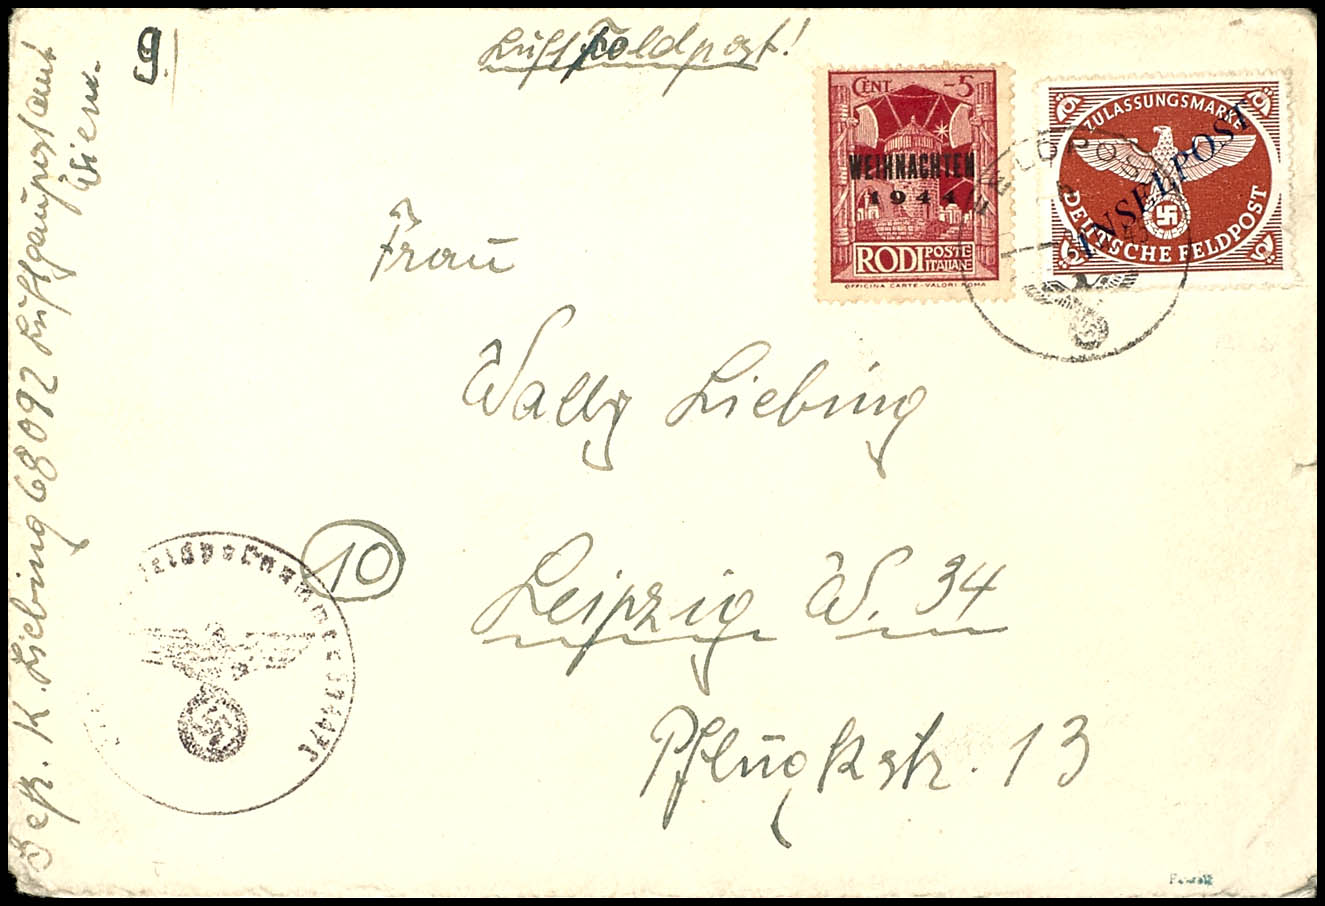 Luftfeldpost!
g
CENT -5
WEIHNACHTEN
1944
RODI POSTE ITALIANE
OFFICINA CARTE-VALORI ROMA
ZULASSUNGSMARKE
INSELPOST
DEUTSCHE FELDPOST
Frau
Wally Liebing
10
Leipzig W. 34
Pflugkstr. 13
K. Liebing 68092 Luftgaupostamt
Wien.